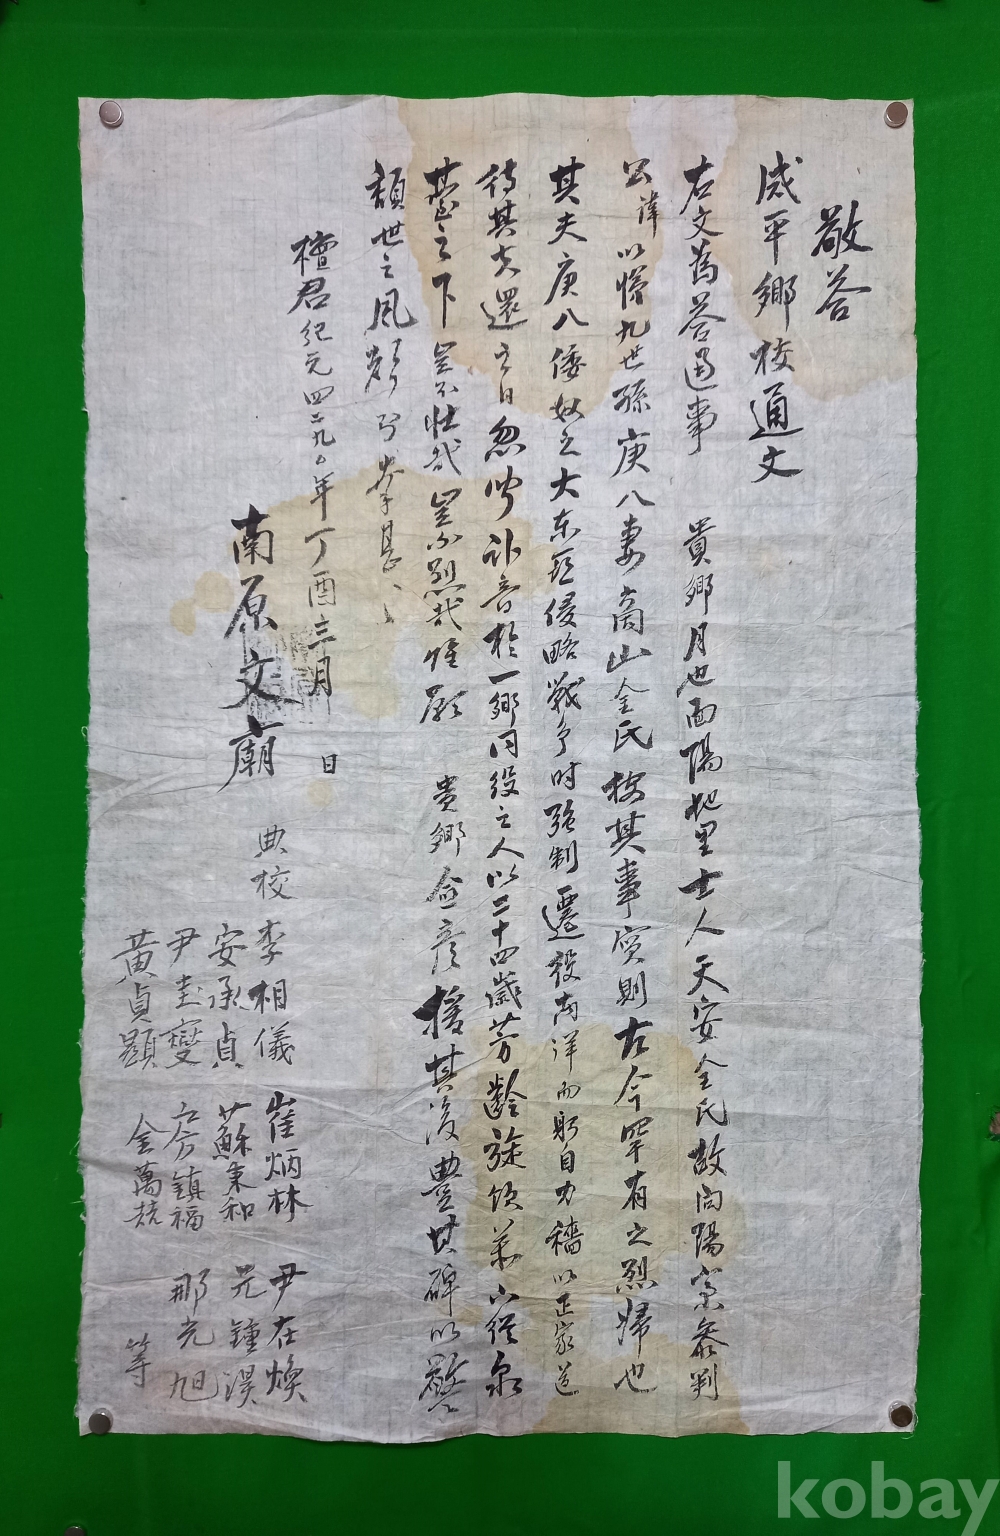 敬答
咸平鄕校通文
右文爲答通事 貴鄕月也面陽地里士人天安全氏故向陽齋參判
公諱以性九世孫庚八妻高山金氏按其事實則古今罕有之烈婦也
其夫庚八倭奴之大東亞侵略戰爭時强制遷役南洋而躬自力穡以正家道
待其夫還之日忽聞訃音於一鄕同役之人以二十四歲芳齡旋飮藥下從泉
臺之下豈不壯哉豈不烈哉惟願 貴鄕僉彦 其後豊其碑以警
頹世之風 幸甚
檀君紀元四二九〇年丁酉三月 日
南原文廟 典校 李相儀 崔炳林 尹在煥
安承貞 蘇秉和 元鍾淏
尹圭燮 房鎭福 那光旭
黃貞顯 金萬 等
kobay